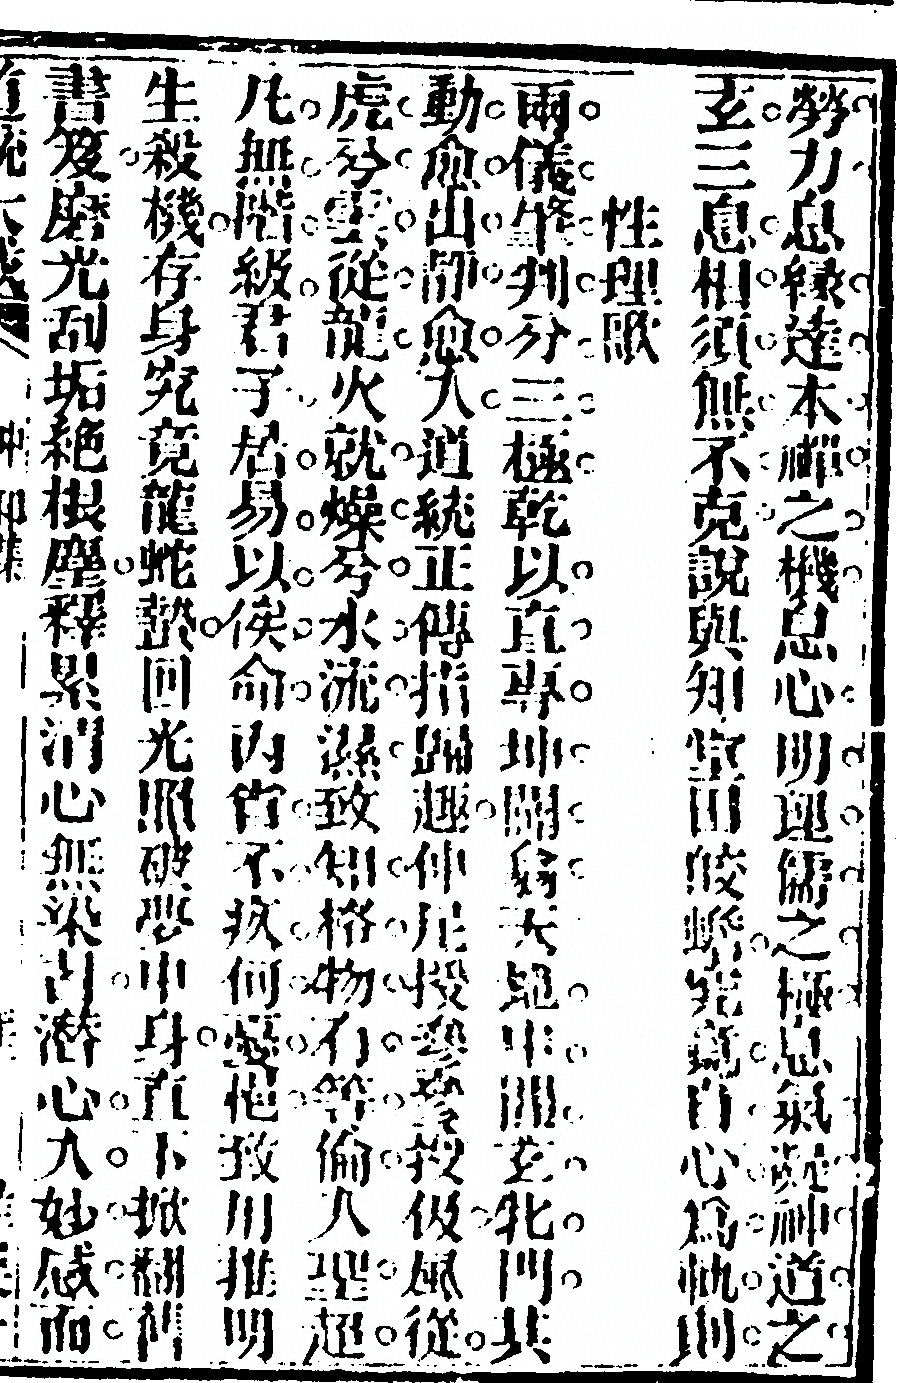 勞力息緣達本禪之機息心明理儒之極息氣凝神道之
玄三息相須無不克說與知堂田皎蟾究竟自心為軌則
性理歌
兩儀肇判分三極乾以直專坤闢翕天地中間玄牝門其
動愈出靜愈入道統正傳指歸趣仲尼授參參授伋風從
虎兮雲從龍火就燥兮水流濕致知格物有等倫入聖超
凡無階級君子居易以俟命內省不疚何憂惕致用推明
生殺機存身究竟龍蛇蟄回光照破夢中身直下掀翻
書笈磨光刮垢絕根塵釋累消心無染習潛心入妙感而
中和集